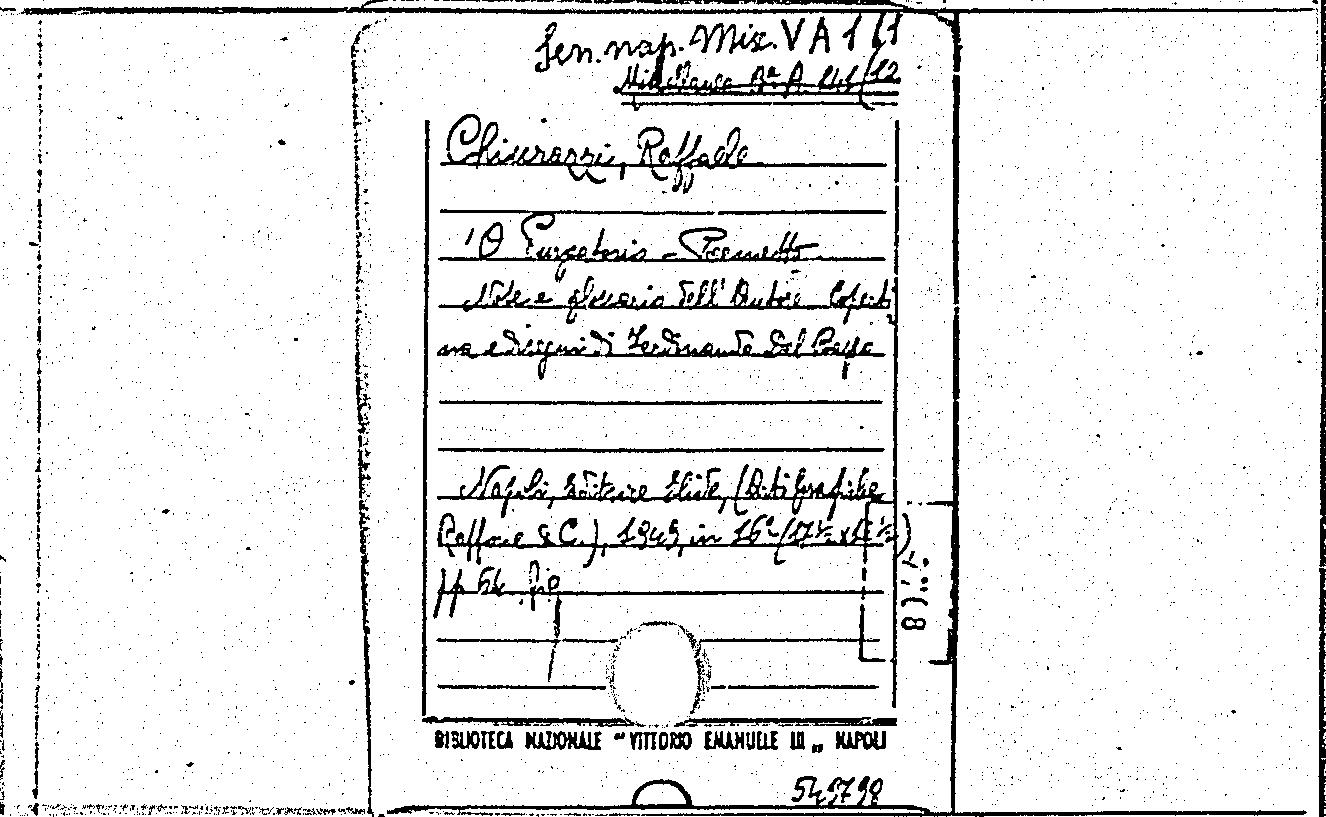 Sen. nap. Misc. V A 1/1
Miscellanea Bª A.
Chiurazzi, Raffaele
'O Purgatorio - Poemetto
Note e glossario dell'Autore Coperti
na e disegni di Ferdinando Del Basso
Napoli, Editrice Elite, (Arti Grafiche
Raffone & C.), 1949, in 16° (17½ x 12½)
pp 54. fig
BIBLIOTECA NAZIONALE "VITTORIO EMANUELE III„ NAPOLI
545798